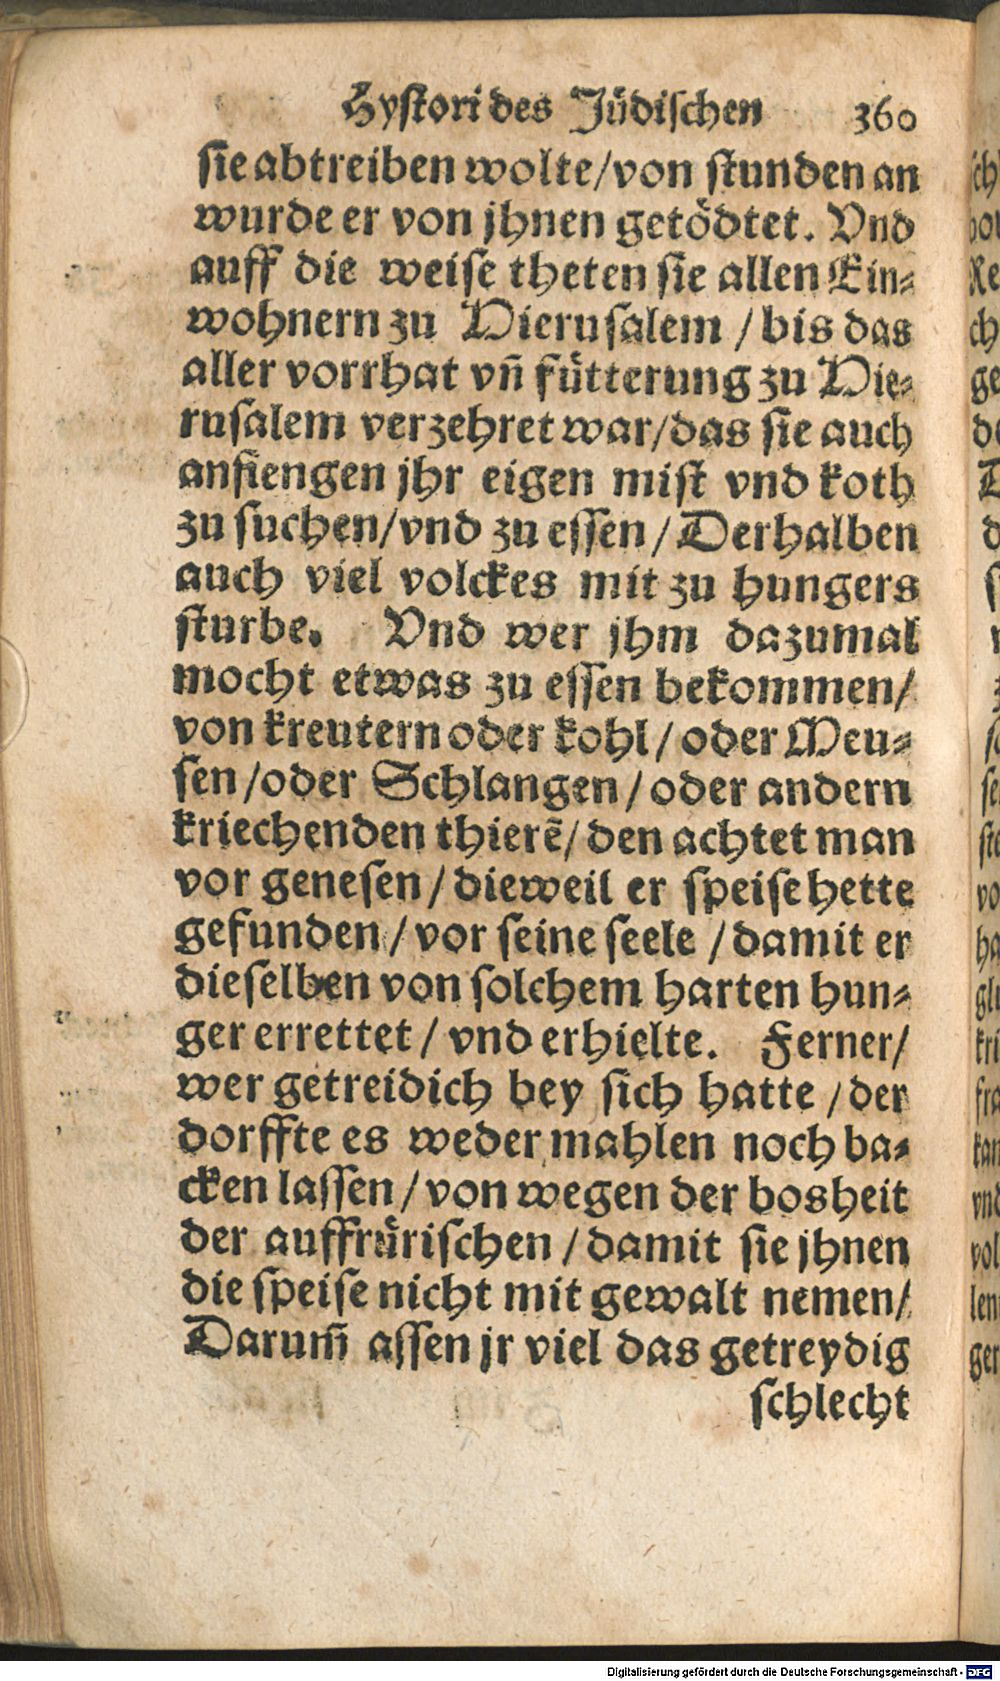 Hystori des Jüdischen 360
sie abtreiben wolte/von stunden an
wurde er von jhnen getödtet. Vnd
auff die weise theten sie allen Ein-
wohnern zu Hierusalem / bis das
aller vorrhat vñ fütterung zu Hie-
rusalem verzehret war/das sie auch
anfiengen jhr eigen mist vnd koth
zu suchen/vnd zu essen / Derhalben
auch viel volckes mit zu hungers
sturbe. Vnd wer jhm dazumal
mocht etwas zu essen bekommen/
von kreutern oder kohl / oder Meu-
sen /oder Schlangen / oder andern
kriechenden thierē/ den achtet man
vor genesen / dieweil er speise hette
gefunden / vor seine seele / damit er
dieselben von solchem harten hun-
ger errettet / vnd erhielte. Ferner/
wer getreidich bey sich hatte / der
dorffte es weder mahlen noch ba-
cken lassen / von wegen der bosheit
der auffrürischen / damit sie jhnen
die speise nicht mit gewalt nemen/
Darum̄ assen jr viel das getreydig
schlecht
Digitalisierung gefördert durch die Deutsche Forschungsgemeinschaft - DFG